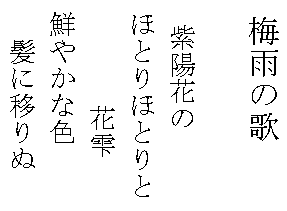 梅雨の歌
紫陽花の
ほとりほとりと
花雫
鮮やかな色
髪に移りぬ